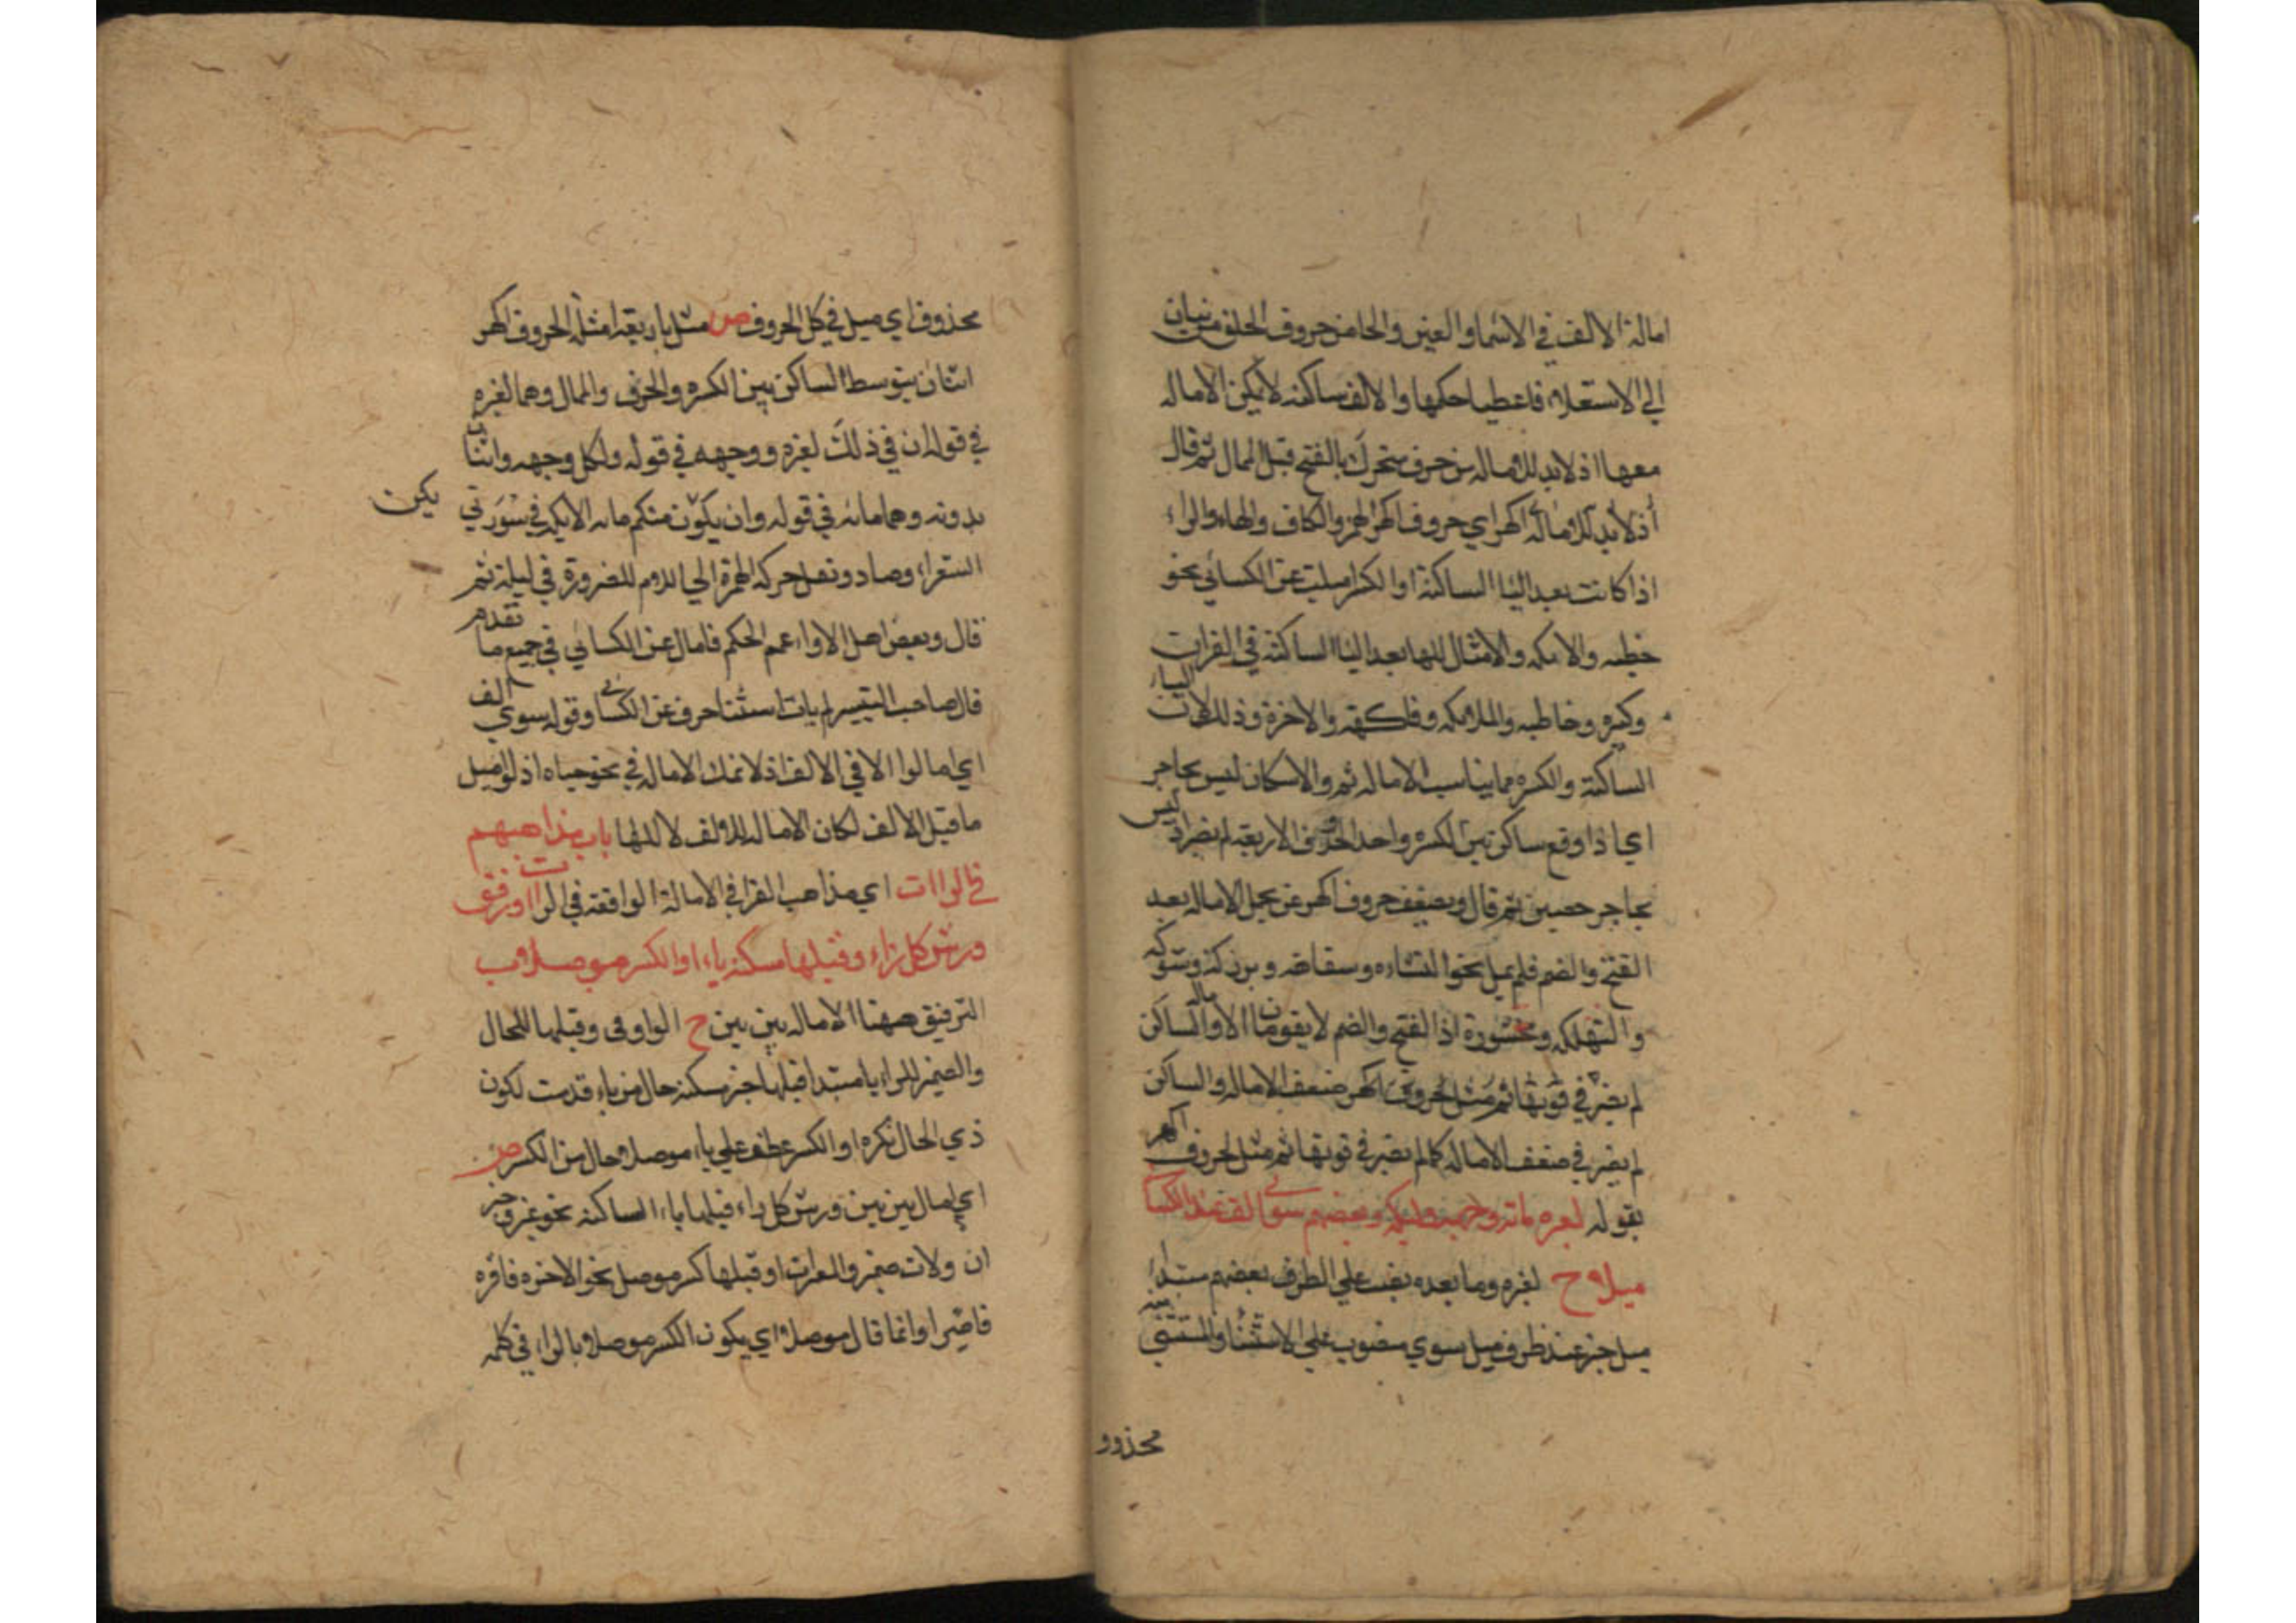 امالة الالف في الاسماء والعين والحا من حروف الحلق قريبتان
الي الاستعلاء فاعطيا حكمها والالف ساكنة لا يمكن الاماله
معها اذ لا بد للاماله من حرف متحرك بالفتح قبل الممال ثم قال
اذ لا بد للاماله اكهر اي حروف اكهر الهمز والكاف والهاء والراء
اذا كانت بعد اليا الساكنة او الكسر اميلت عن الكسائي نحو
خطيه والايكه والامثال لها بعد اليا الساكنة في القران
وكبيره وخاطيه والملايكه وفاكهة والاخرة وذلك لان الياء
الساكنة والكسره مما يناسب الاماله ثم والاسكان ليس بحاجر
اي اذا وقع ساكن بين الكسره واحد الحروف الاربعة لم يضر اذ ليس
بحاجر حصين ثم قال ويضعف حروف اكهر عن محل الاماله بعد
الفتح والضم فلم يمل نحو النشاه وسفاهه وبررة وشوكه
والتهلكه ومحشورة اذ الفتح والضم لا يقومان الاماله والساكن
لم يضر في قوتها ثم مثل الحروف اكهر ضعف الاماله والساكن
لم يضر في ضعف الاماله كما لم يضر في قوتها ثم مثل لحروف اكهر
بقوله لعبره مائه وجهه وليكه وبعضهم سوى الف عند الكسائي
ميلا ح لعبره وما بعده نصب علي الظرف بعضهم مبتدا
ميل خبر عند ظرف ميل سوي منصوب علي الاستثنا والمستثني منه
محذوو
محذوف اي ميل في كل الحروف ص مثل باربعة امثلة الحروف اكهر
اثنان بتوسط الساكن بين الكسره والحرف والممال وهما لعبره
في قوله ان في ذلك لعبره ووجهه في قوله ولكل وجهه واثنان
بدونه وهما مائه في قوله وان يكن منكم مائه الايكه في سورتي
يكن
الشعراء وصاد ونقل حركة الهمزة الي اللام للضرورة في ليكة ثم
قال وبعض اهل الاداء عمم الحكم فامال عن الكسائي في جميع ما تقدم
قال صاحب التيسير لم يات استثنا حرف عن الكسائي وقوله سوي الف
اي امالوا الا في الالف اذ لا تمك الاماله في نحو حياه اذ لو اميل
ما قبل الالف لكان الاماله للالف لا للها باب مذاهبهم
في الراات اي مذاهب القرا في الامالة الواقعة في الراات ورقق
ورش كل راء وقبلها مسكنة ياء او الكسر موصلا ب
الترقيق ههنا الاماله بين بين ح الواو في وقبلها للحال
والضمير للراء يا مبتدا قبلها خبر مسكنة حال من ياء قدمت لكون
ذي الحال نكره او الكسر عطف علي ياء موصلا حال من الكسر ص
اي امال بين بين ورش كل راء قبلها ياء الساكنه نحو
ان ولات ضير والعرات او قبلها كسر موصل نحو الاخره فاقره
قاصرا وانما قال موصلا اي يكون الكسر موصلا بالراء في كلمه